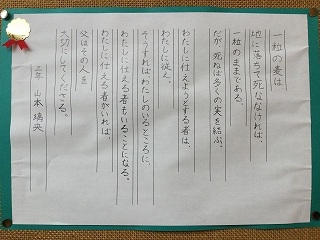 一粒の麦は
地に落ちて死ななければ、
一粒のままである。
だが、死ねば多くの実を結ぶ。
わたしに仕えようとする者は、
わたしに従え。
そうすればわたしのいるところに、
わたしに仕える者もいることになる。
わたしに仕える者がいれば、
父はその人を
大切にしてくださる。
三年 山本 璃央